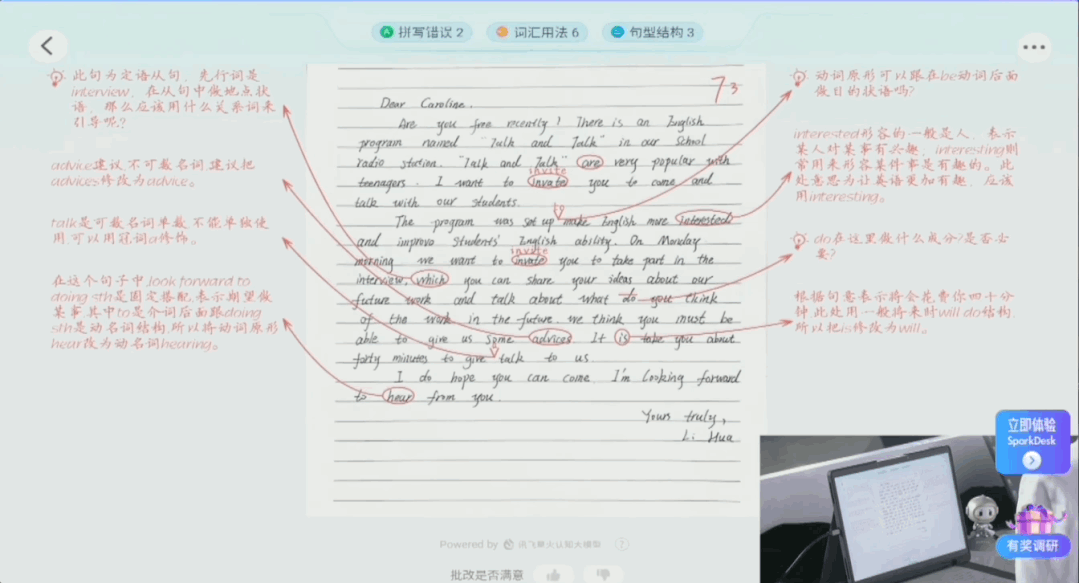 拼写错误 2
词汇用法 6
句型结构 3
此句为定语从句，先行词是
interview，在从句中做地点状
语，那么应该用什么关系词来
引导呢？
advice建议，不可数名词，建议把
advices修改为advice。
talk是可数名词单数，不能单独使
用，可以用冠词a修饰。
在这个句子中，look forward to
doing sth是固定搭配，表示期望做
某事，其中to是介词后面跟doing
sth是动名词结构，所以将动词原形
hear改为动名词hearing。
73
Dear Caroline,
Are you free recently? There is an English
program named "Talk and Talk" in our School
radio station. "Talk and Talk" are very popular with
invite
teenagers. I want to invate you to come and
talk with our students.
to
The program was set up make English more interested
and improve students' English ability. On Monday
invite
morning we want to invate you to take part in the
interview, which you can share your ideas about our
future work and talk about what do you think
of the work in the future. we think you must be
able to give us some advices. It is take you about
forty minutes to give talk to us.
I do hope you can come. I'm looking forward
to hear from you.
Yours truly,
Li Hua
动词原形可以跟在be动词后面
做目的状语吗？
interested形容的一般是人，表示
某人对某事有兴趣，interesting则
常用来形容某件事是有趣的。此
处意思为让英语更加有趣，应该
用interesting。
do在这里做什么成分？是否必
要？
根据句意表示将会花费你四十分
钟，此处用一般将来时will do结构，
所以把is修改为will。
立即体验
SparkDesk
有奖调研
Powered by 讯飞星火认知大模型
批改是否满意